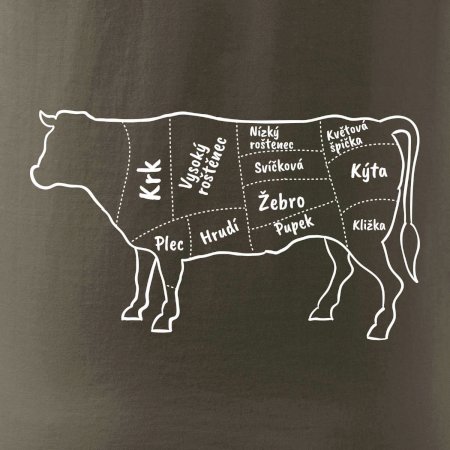 Krk
Vysoký
roštěnec
Nízký
roštenec
Květová
špička
Svíčková
Kýta
Žebro
Plec
Hrudí
Pupek
Kližka